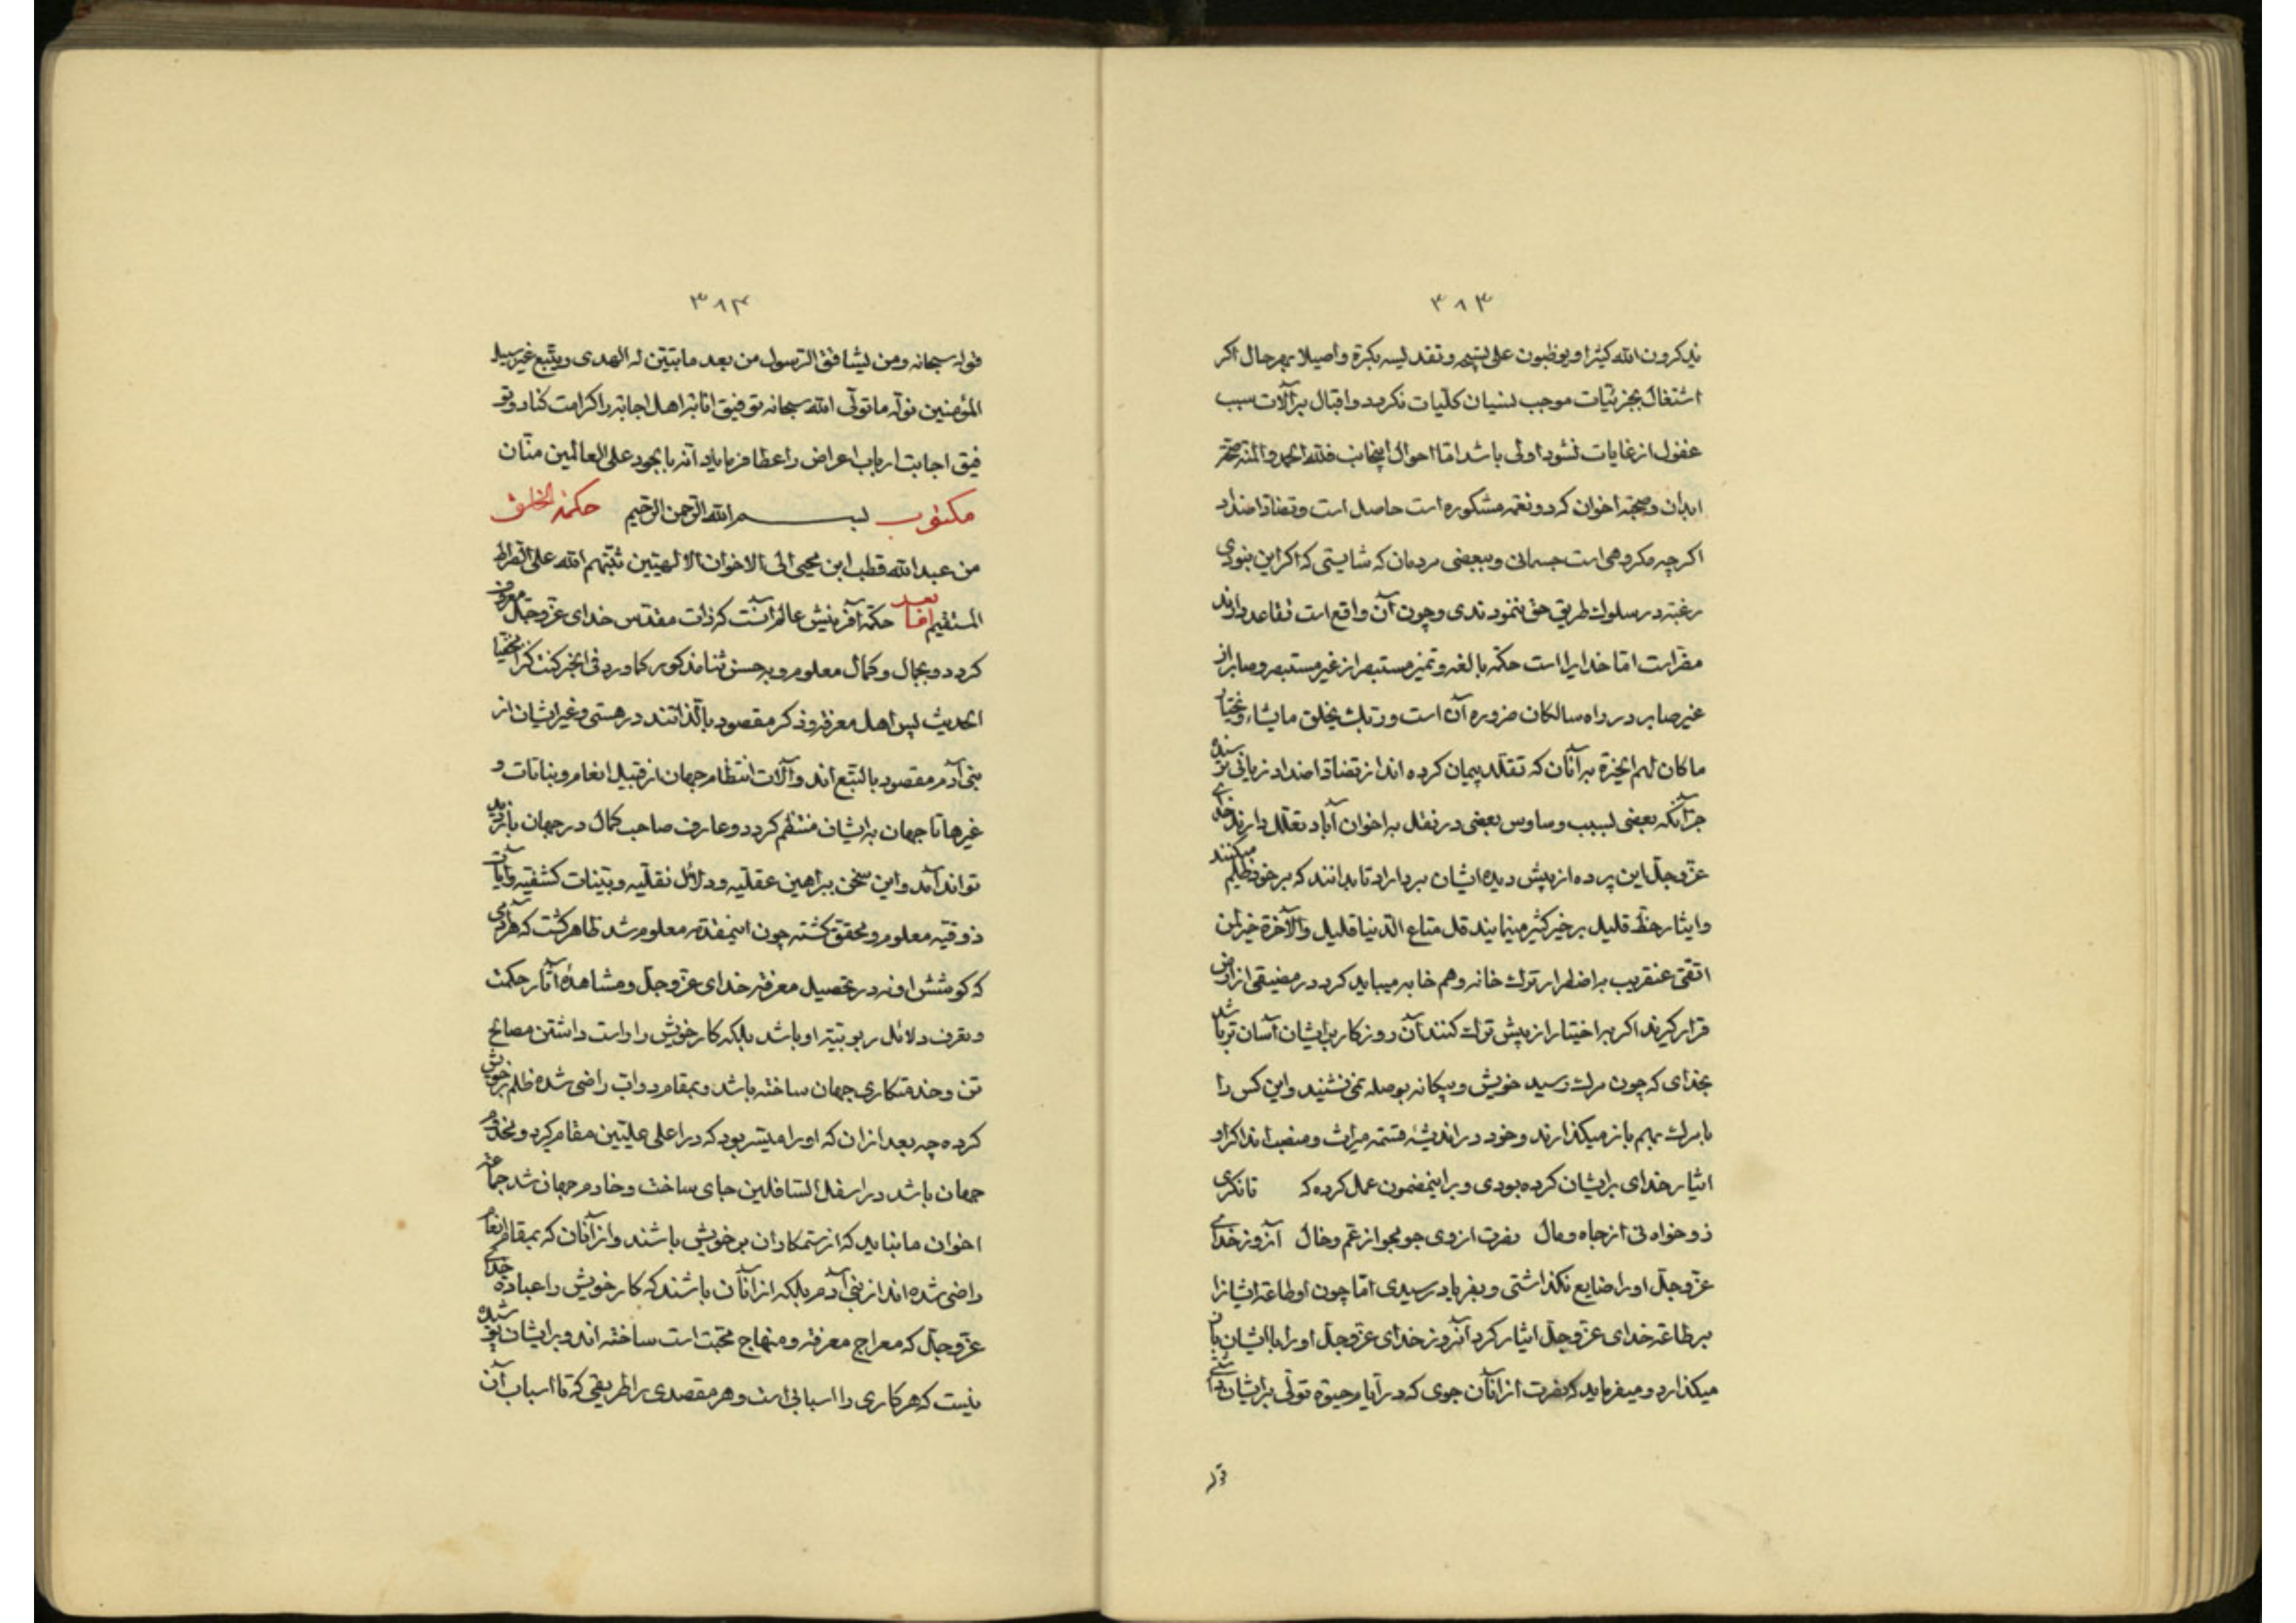 ۳۸۳
یذکرون الله کثیرا ویوظبون علی تسبیحه وتقدیسه بکرة واصیلا بهرحال اکر
اشتغال بجزئیات موجب نسیان کلّیات نکردد واقبال بر آلات سبب
غفول از غایات نشود اولی باشد امّا احوال اینجانب فلله الحمد والمنة صحّة
ابدان وصحبة اخوان که دو نعمة مشکوره است حاصل است وتضادّ اضداد
اکرچه مکروهی است جسمانی وببعضی مردمان که شایستی که اکر این نبودی
رغبة در سلوك طریق حق بنمودندی وچون آن واقع است تقاعد دارند
مضرّ است امّا خدایرا است حکمة بالغه وتمیز مستبصر از غیر مستبصر وصابر از
غیر صابر در راه سالکان ضرورة آن است وربّك یخلق ما یشاء ویختار
ما کان لهم الخیرة بر آنان که تقلّد پیمان کرده اند از تضادّ اضداد زیانی نرسیده
جز آنکه بعضی لسبب وساوس بعضی در نقل به اخوان آباد تعلّل دارند خدای
عزّوجلّ این پرده از پیش دیده ایشان بردارد تا بدانند که بر خود ظلم میکنند
وایثار حظّ قلیل بر خیر کثیر مینمایند قل متاع الدنیا قلیل والآخرة خیر لمن
اتّقی عنقریب به اضطرار ترك خانه وهم خابه میباید کرد در مضیقی از ارض
قرار کیرند اکر به اختیار از پیش ترك کنند آن روز کار بر ایشان آسان تر باشد
بخدای که چون مرك رسید خویش وبیکانه بوصله نمی نشنید واین کس را
با مرك بهم باز میکذارند وخود در اندیشۀ قسمة میراث ومنصب اند اکر او
ایثار خدای بر ایشان کرده بودی وبر اینمضمون عمل کرده که تا نکری
ذو خواه نی از جاه ومال نفرت از وی جو مجو از عم وخال آنروز خدای
عزّوجلّ او را ضایع نکذاشتی وبفریاد رسیدی امّا چون او طاعة ایشانرا
بر طاعة خدای عزّوجلّ ایثار کرد آنروز خدای عزّوجلّ او را با ایشان باز
میکذارد ومیفرماید که نفرت از آنان جوی که در آیام حیوة تولّی بر ایشان داشتی
قوله
۳۸۴
قوله سبحانه ومن یشاقق الرّسول من بعد ما تبیّن له الهدی ویتّبع غیر سبیل
المؤمنین نولّه ما تولّی الله سبحانه توفیق انابة اهل اجابة را کرامت کناد وتو
فیق اجابت ارباب اعراض را عطا فرمایاد انّه بالجود علی العالمین منّان
مکتوب بسم الله الرّحمن الرّحیم حکمة الخلق
من عبدالله قطب ابن محیی الی الاخوان الالهیّین ثبّتهم الله علی الصّراط
المستقیم امّا بعد حکمة آفرینش عالم آنست که ذات مقدّس خدای عزّوجلّ معروف
کردد وبجمال وکمال معلوم وبه حسن ثنا مذکور کما ورد فی الخبر کنت کنزا مخفیّا
الحدیث پس اهل معرفة وذکر مقصود بالذّاتند در هستی وغیر ایشان از
بنی آدم مقصود بالتّبع اند وآلات انتظام جهان از قبیل انعام ونباتات و
غیرها تا جهان به ایشان منتظم کردد وعارف صاحب کمال در جهان پا بزیر
تواند آمد واین سخن ببراهین عقلیّه ودلائل نقلیّه وبیّنات کشفیّه وآیات
ذوقیّه معلوم ومحقّق کشته چون اینمقدّمه معلوم شد ظاهر کشت که هر آدمی
که کوشش او نه در تحصیل معرفة خدای عزّوجلّ ومشاهدۀ آثار حکمت
وتعرف دلائل ربوبیّة او باشد بلکه کار خویش را راست داشتن مصالح
تن وخدمتکاری جهان ساخته باشد وبمقام دوابّ راضی شده ظلم بر خویش
کرده چه بعد از ان که او را میسّر بود که در اعلی علیّین مقام کیرد ومخدوم
جهان باشد در اسفل السّافلین جای ساخت وخادم جهان شد جماعة
اخوان ما نباید که از ستمکاران بر خویش باشند واز آنان که بمقام انعام
راضی شده اند از بنی آدم بلکه از آنان باشند که کار خویش را عبادة خدای
عزّوجلّ که معراج معرفة ومنهاج محبّت است ساخته اند وبر ایشان پوشیده
نیست که هر کاری را اسبابی است وهر مقصدی را طریقی که تا اسباب آن